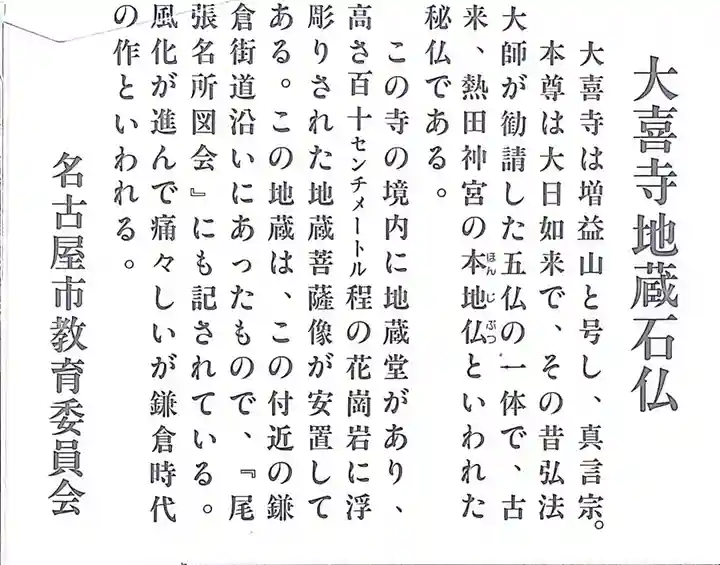 大喜寺地蔵石仏
大喜寺は増益山と号し、真言宗。
本尊は大日如来で、その昔弘法
大師が勧請した五仏の一体で、古
来、熱田神宮の本地仏といわれた
秘仏である。
この寺の境内に地蔵堂があり、
高さ百十センチメートル程の花崗岩に浮
彫りされた地蔵菩薩像が安置して
ある。この地蔵は、この付近の鎌
倉街道沿いにあったもので、『尾
張名所図会』にも記されている。
風化が進んで痛々しいが鎌倉時代
の作といわれる。
名古屋市教育委員会